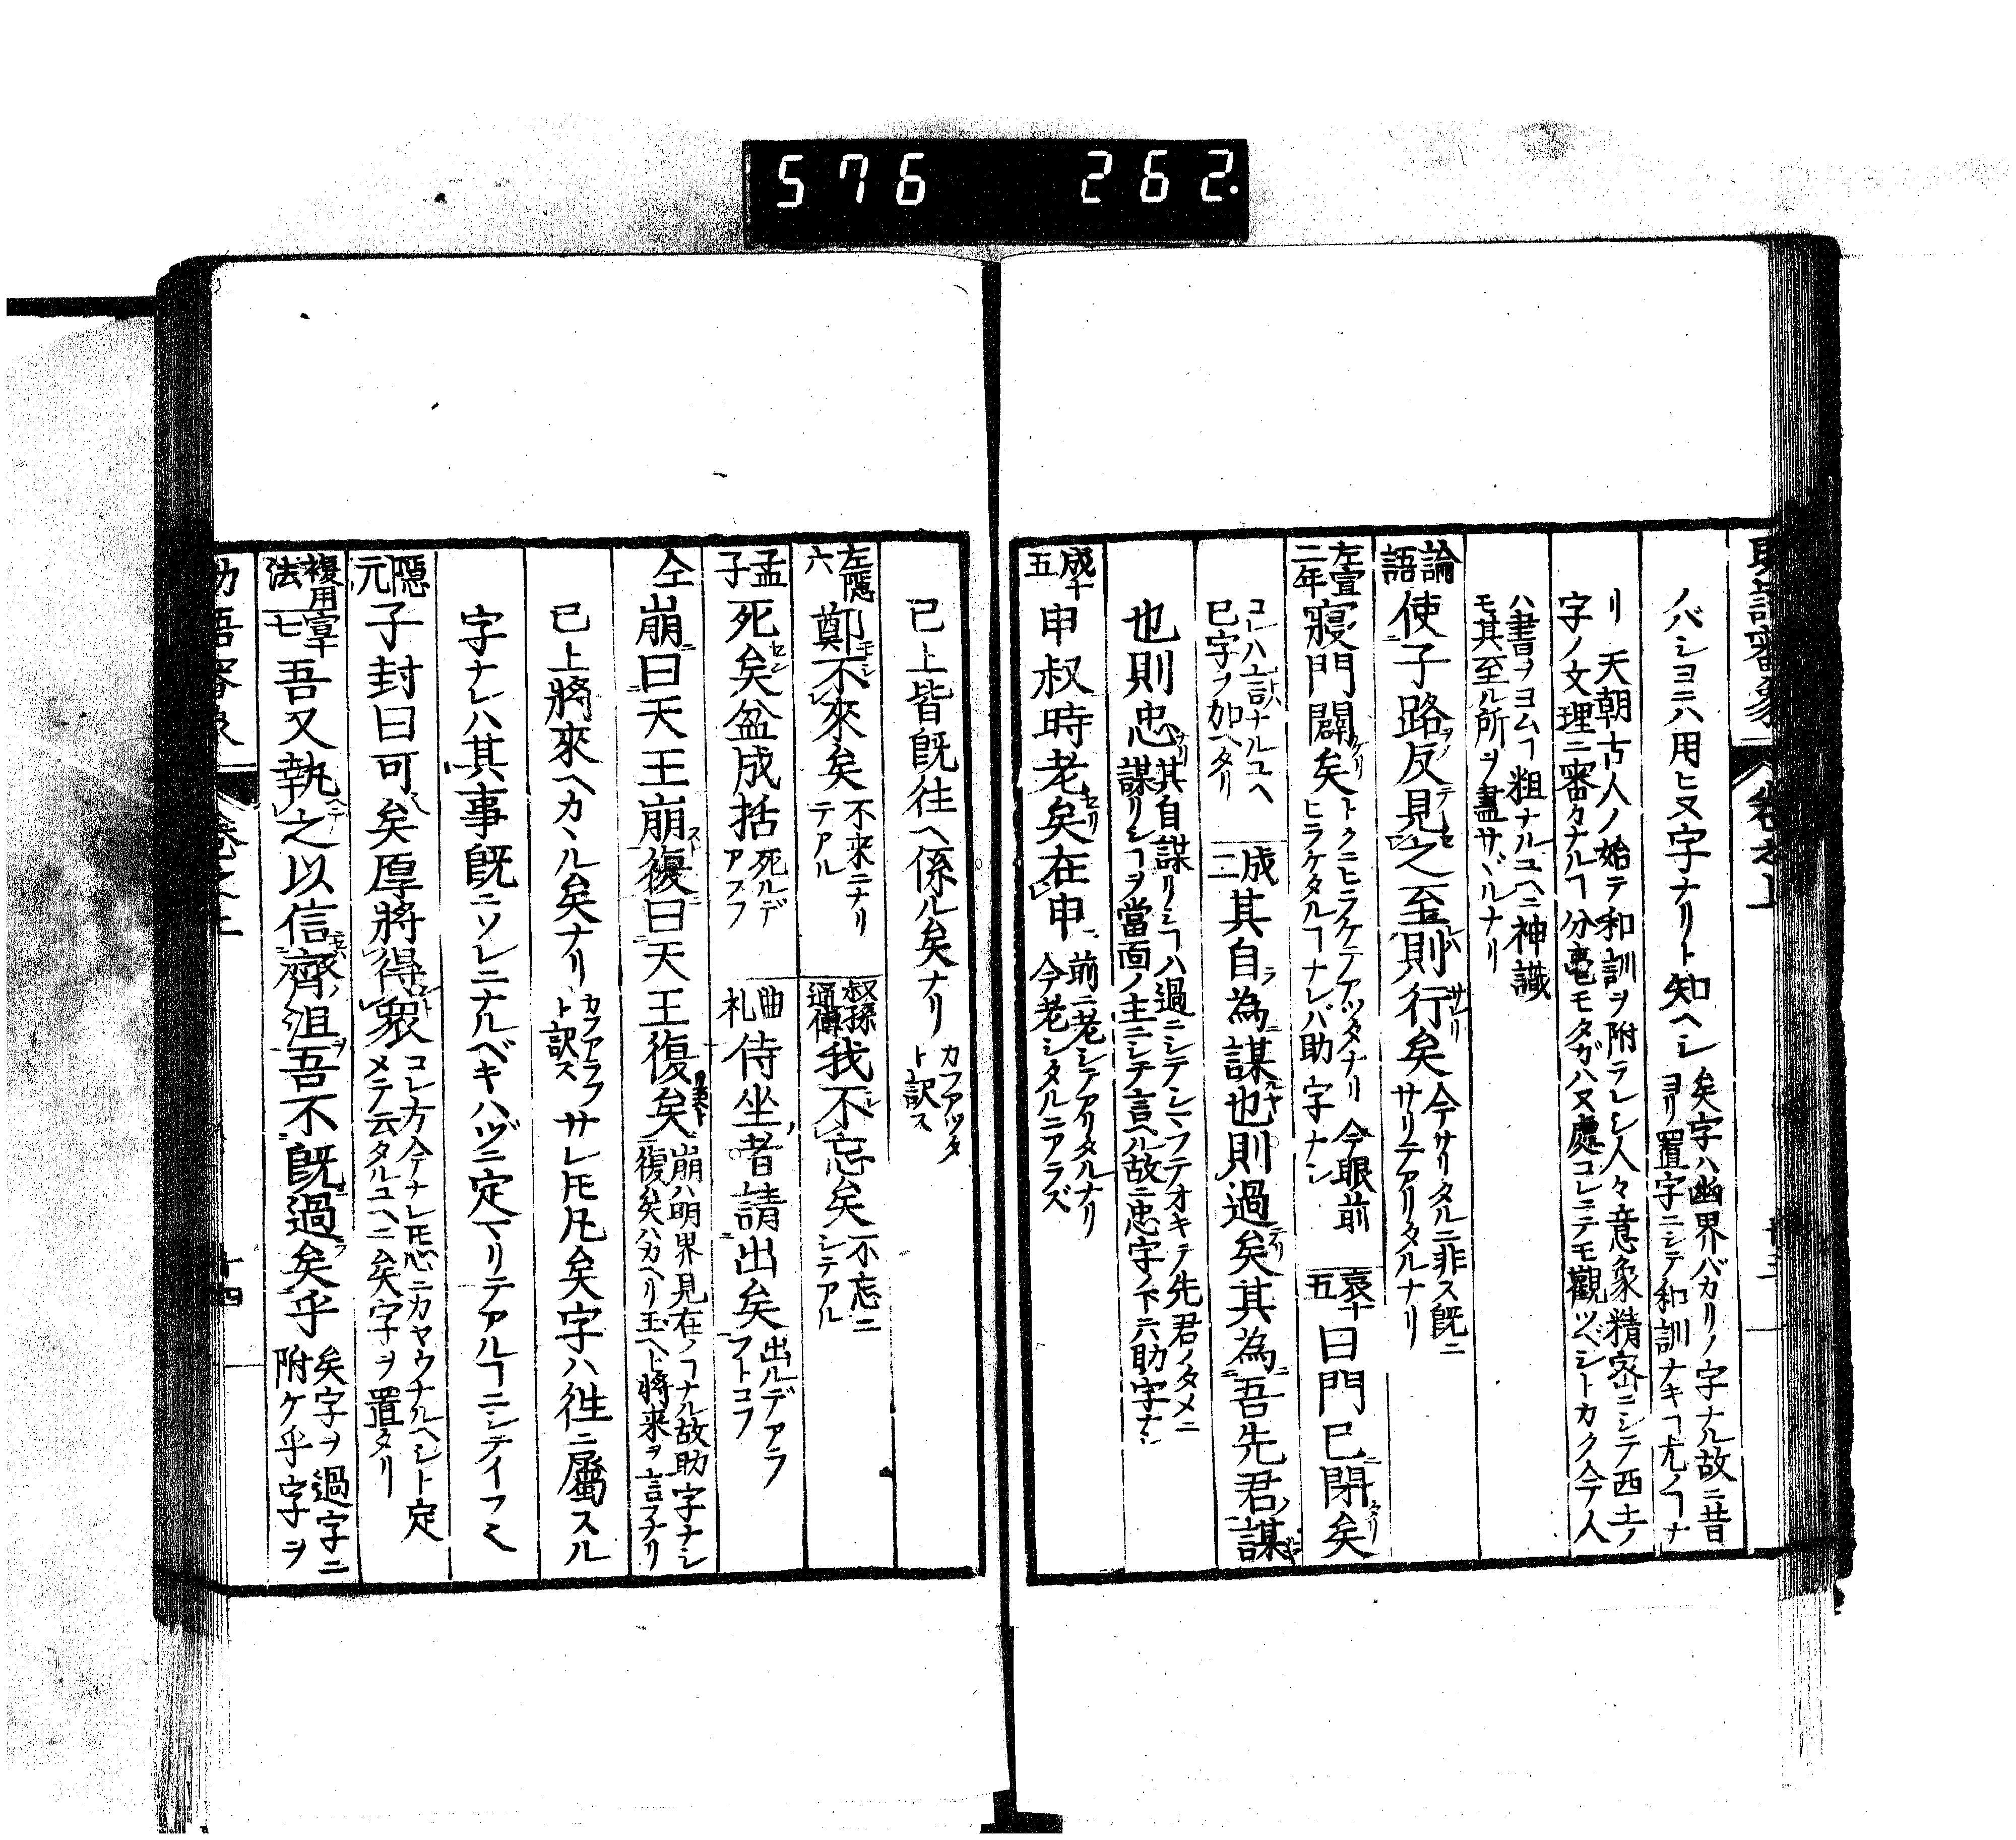 576 262.
助語審象 卷之上 十三
ノバシヨニハ用ヒヌ字ナリト知ヘシ 矣字ハ幽界バカリノ字ナル故ニ昔
ヨリ置字ニシテ和訓ナキヿ尤ノヿナ
リ 天朝古人ノ始テ和訓ヲ附ラレシ人々意象精密ニシテ西土ノ
字ノ文理ニ審カナルヿ分毫モタガハヌ處コレニテモ觀ツベシトカク今ノ人
ハ書ヲヨムヿ粗ナルユヘニ神識
モ其至ル所ヲ盡サヾルナリ
論語 使子路反見之至則行矣 今サリタルニ非ス既ニ
サリテアリタルナリ
左宣二年 寢門闢矣 トクニヒラケテアツタナリ 今眼前
ヒラケタルヿナレバ助字ナシ
哀十五 曰門已閉矣
コレハ言ナルユヘ
已字ヲ加ヘタリ
成二 其自為謀也則過矣其為吾先君謀
也則忠 其自謀リシヿハ過ニシテシマフテオキテ先君ノタメニ
謀リシヿヲ當面ノ主ニシテ言ヘル故ニ忠字ノ下ニ助字ナシ
成十五 申叔時老矣在申 前ニ老シテアリタルナリ
今老シタルニアラズ
已上皆既往ヘ係ル矣ナリ カフアツタ
ト訳ス
左隱六 鄭不來矣 不来ニナリ
テアル
叔孫通傳 我不忘矣 不忘ニ
シテアル
孟子 死矣盆成括 死ルデ
アラフ
曲礼 侍坐者請出矣 出ルデアラ
フトコフ
仝 崩曰天王崩復曰天王復矣 崩ハ明界見在ノヿナル故助字ナシ
復矣ハカヘリ玉ヘト將来ヲ言フナリ
已上將來ヘカヽル矣ナリ カフアラフ
ト訳ス
サレ𪜈凡矣字ハ徃ニ屬スル
字ナレハ其事既ニソレニナルベキハヅニ定マリテアルヿニシテイフミ
隱元 子封曰可矣厚將得衆 コレ方今ナレ𪜈心ニカヤウナルヘシト定
メテ云タルユヘニ矣字ヲ置タリ
複用法 宣十七 吾又執之以信齊沮吾不既過矣乎 矣字ヲ過字ニ
附ケ乎字ヲ
助語審象 卷之上 十四